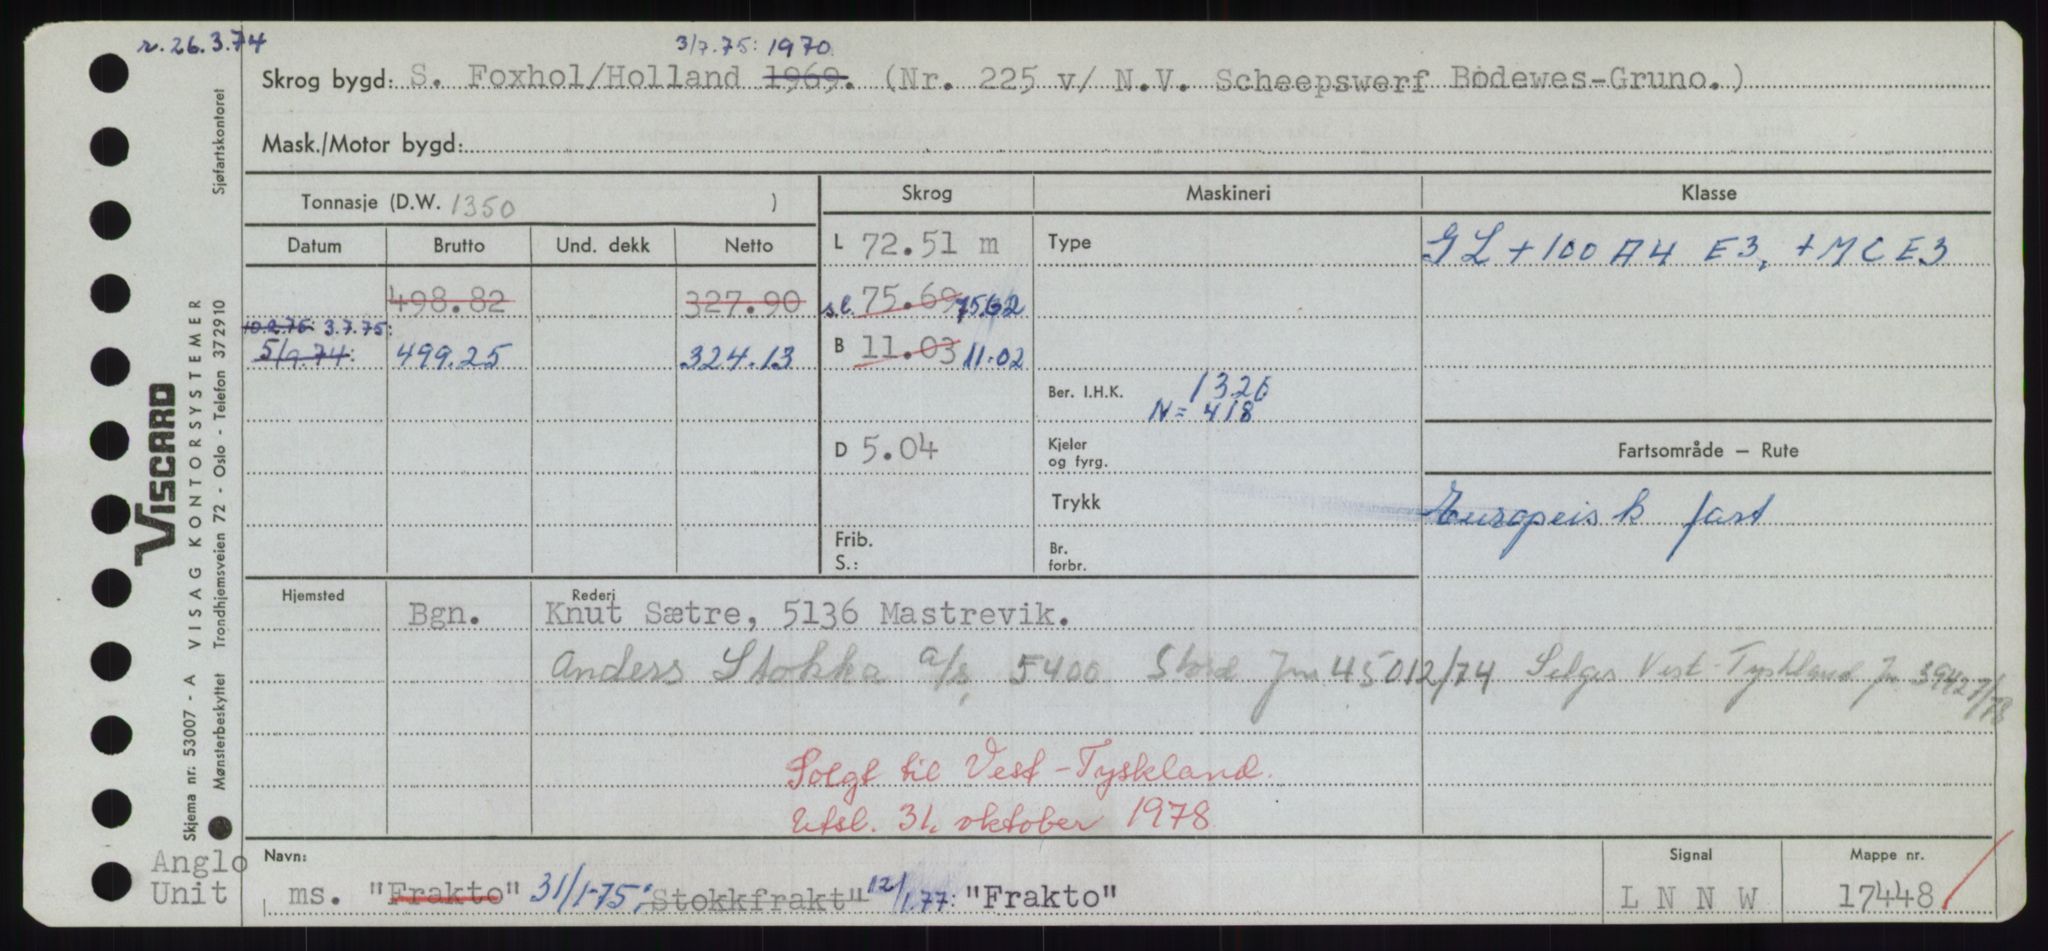 r. 26.3.74
3/7.75: 1970.
Skrog bygd: S. Foxhol/Holland 1969. (Nr. 225 v/ N.V. Scheepswerf Bodewes-Gruno.)
Mask./Motor bygd:
Tonnasje (D.W. 1350 )
Skrog
Maskineri
Klasse
Datum
Brutto
Und. dekk
Netto
L 72.51 m
Type
GL + 100 A4 E3, + MC E3
498.82
327.90
s.l. 75.69 75.62
10.2.75 3.7.75:
5/9.74:
499.25
324.13
B 11.03 11.02
Ber. I.H.K. 1326
N = 418
D 5.04
Kjeler
og fyrg.
Fartsområde – Rute
Trykk
Europeisk fart
Frib.
S.:
Br.
forbr.
Hjemsted
Rederi
Bgn.
Knut Sætre, 5136 Mastrevik.
Anders Stokka a/s, 5400 Stord Jnr 45012/74 Selges Vest-Tyskland Jn 39427/78
Solgt til Vest-Tyskland.
Utsl. 31. oktober 1978
Navn:
Signal
Mappe nr.
ms. "Frakto" 31/1-75: "Stokkfrakt" 12/1.77: "Frakto"
L N N W
17448
Anglo
Unit
Viscard
VISAG KONTORSYSTEMER
Sjøfartskontoret
Skjema nr. 53007 - A
Mønsterbeskyttet Trondhjemsveien 72 - Oslo - Telefon 372910